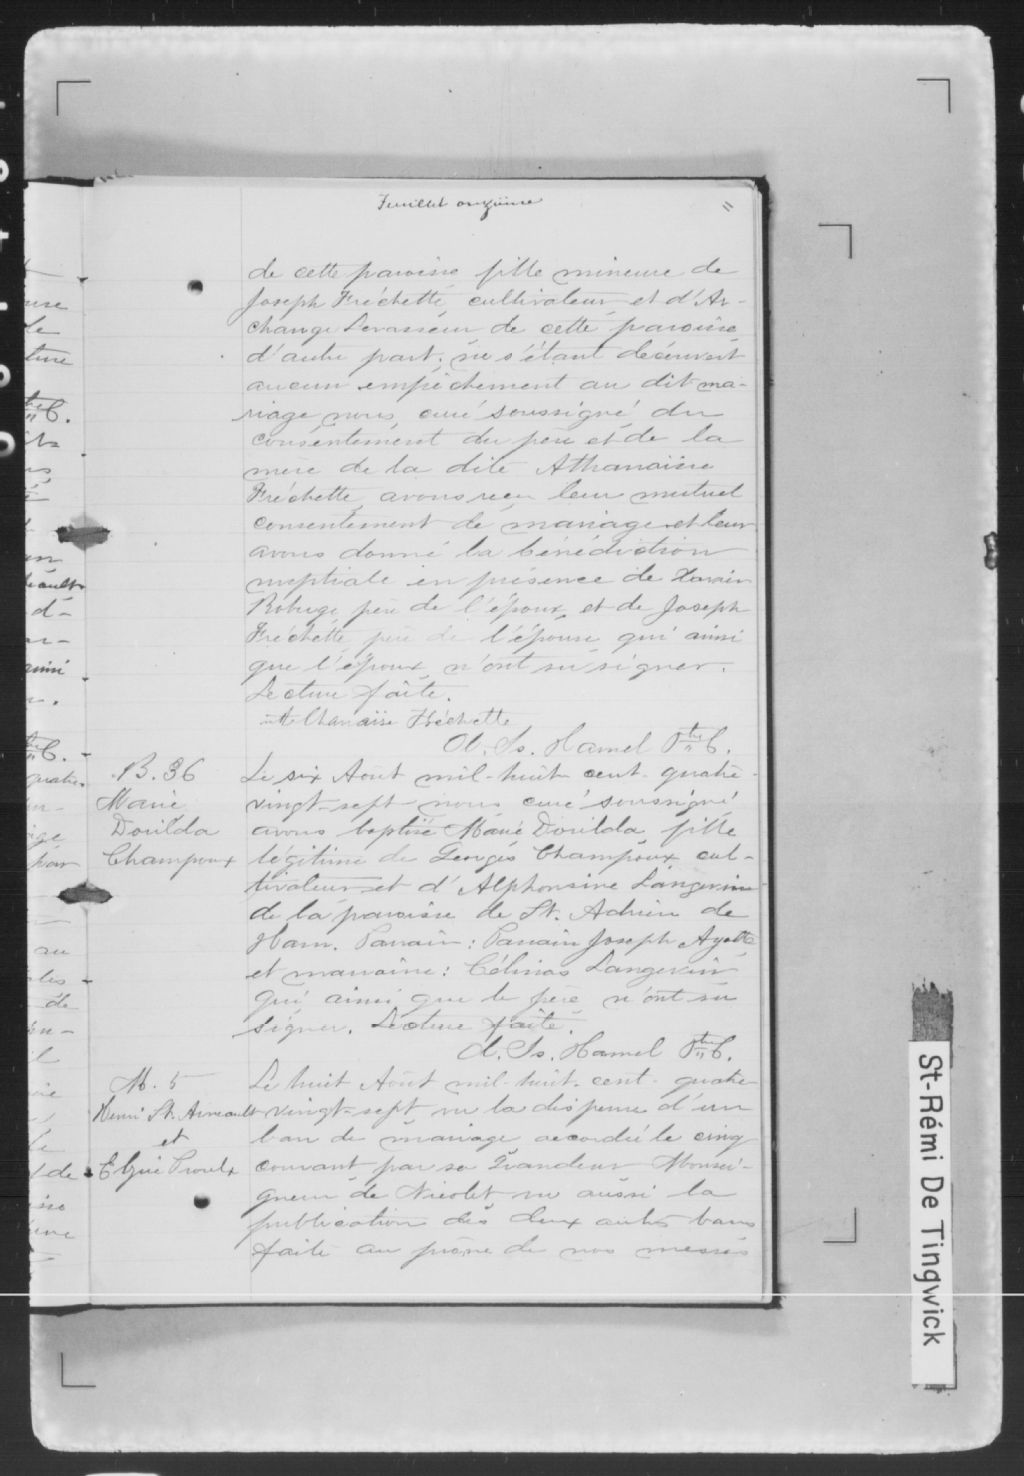 Feuillet onzième
11
de cette paroisse fille mineure de
Joseph Fréchette cultivateur et d'Ar-
change Levasseur de cette paroisse
d'autre part. ne s'étant découvert
aucun empêchement au dit ma-
riage nous curé soussigné du
consentement du père et de la
mère de la dite Athanaïse
Fréchette avons reçu leur mutuel
consentement de mariage et leur
avons donné la bénédiction
nuptiale en présence de
Roberge père de l'époux et de Joseph
Fréchette père de l'épouse qui ainsi
que l'époux n'ont su signer.
Lecture faite.
Athanaïse Fréchette
Hamel Ptre C.
B. 36
Marie
Dorilda
Champoux
Le six Août mil-huit cent-quatre-
vingt-sept nous curé soussigné
avons baptisé Marie Dorilda fille
légitime de Georges Champoux cul-
tivateur et d'Alphonsine Langevin
de la paroisse de St. Adrien de
Ham. Parrain: Parrain Joseph Ayotte
et marraine: Célinas Langevin
qui ainsi que le père n'ont su
signer. Lecture faite.
Hamel Ptre C.
M. 5
Henri St. Arneault
et
Elzire Proulx
Le huit Août mil-huit-cent-quatre-
vingt-sept vu la dispense d'un
ban de mariage accordée le cinq
courant par sa Grandeur Monsei-
gneur de Nicolet vu aussi la
publication des deux autres bans
faite au prône de nos messes
St-Rémi De Tingwick